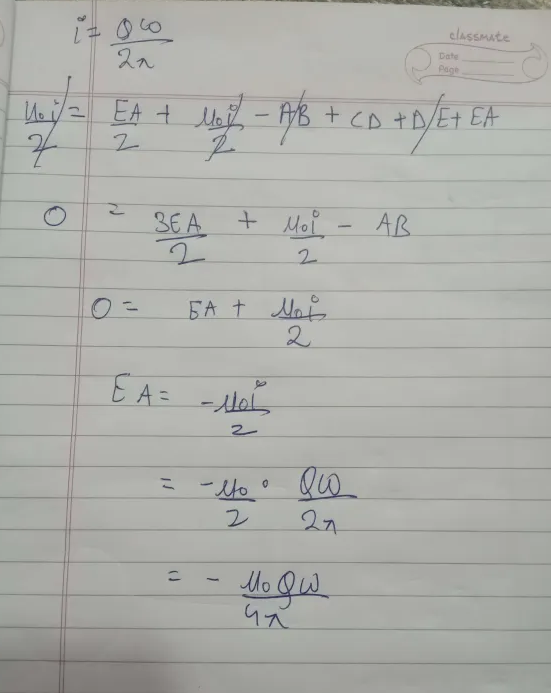 i = Qω/2π
classmate
Date
Page
μ₀i/2 = EA/2 + μ₀i/2 - AB + CD + D/E + EA
0 = 3EA/2 + μ₀i/2 - AB
0 = EA + μ₀i/2
EA = -μ₀i/2
= -μ₀/2 · Qω/2π
= - μ₀Qω/4π